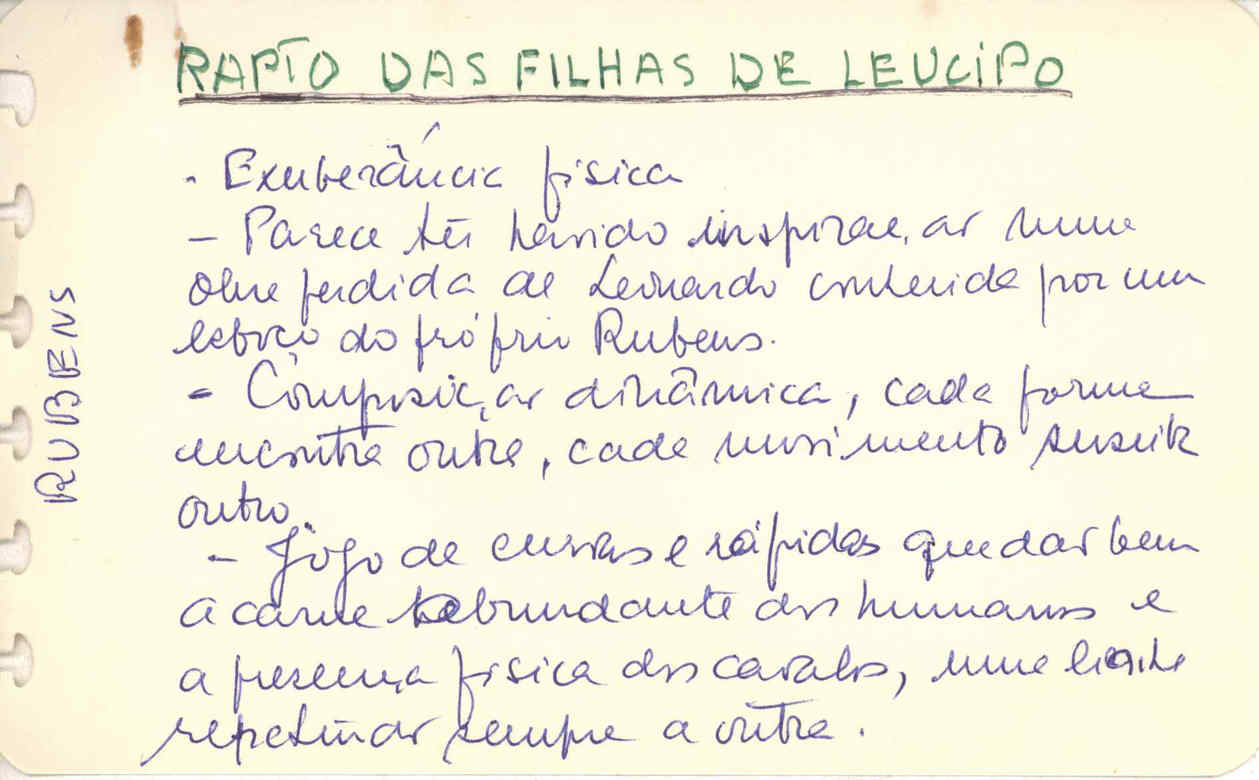 RAPTO DAS FILHAS DE LEUCIPO
RUBENS
- Exuberância física
- Parece ter havido inspiração numa
obra perdida de Leonardo conhecida por um
esboço do próprio Rubens.
- Composição dinâmica, cada forma
encontra outra, cada movimento suscita
outro.
- Jogo de curvas e rápidas que dão bem
a carne abundante dos humanos e
a presença física dos cavalos, numa
repetindo sempre a outra.